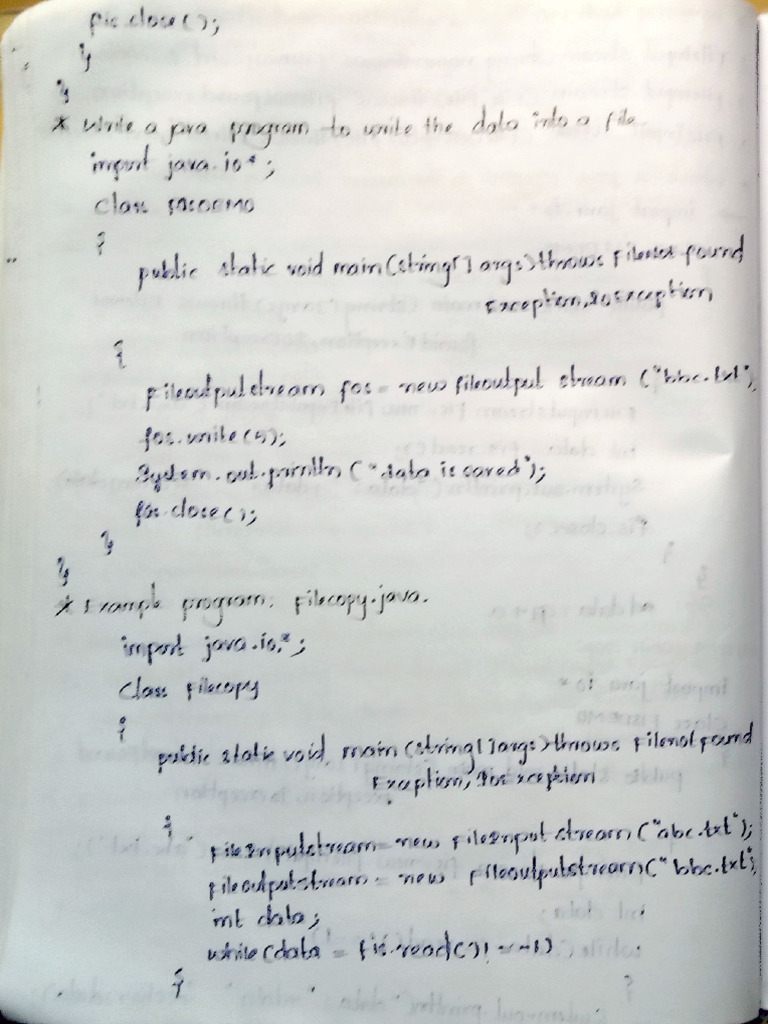 fis.close();
}
}
* Write a java program to write the data into a file
import java.io*;
class FOSDEMO
{
public static void main(string[] args)throws Filenot found
Exception,IOException
{
Fileoutputstream fos = new fileoutput stream ("bbc.txt");
fos.write(5);
System.out.println ("data is saved");
fos.close();
}
}
* Example program: Filecopy.java.
import java.io.*;
class Filecopy
{
public static void main(string[]args)throws Filenotfound
Exception, IOException
{
FileInputstream = new FileInput stream ("abc.txt");
fileoutputstream = new fileoutputstream("bbc.txt");
int data;
while(data = fis.read()! = -1)
{